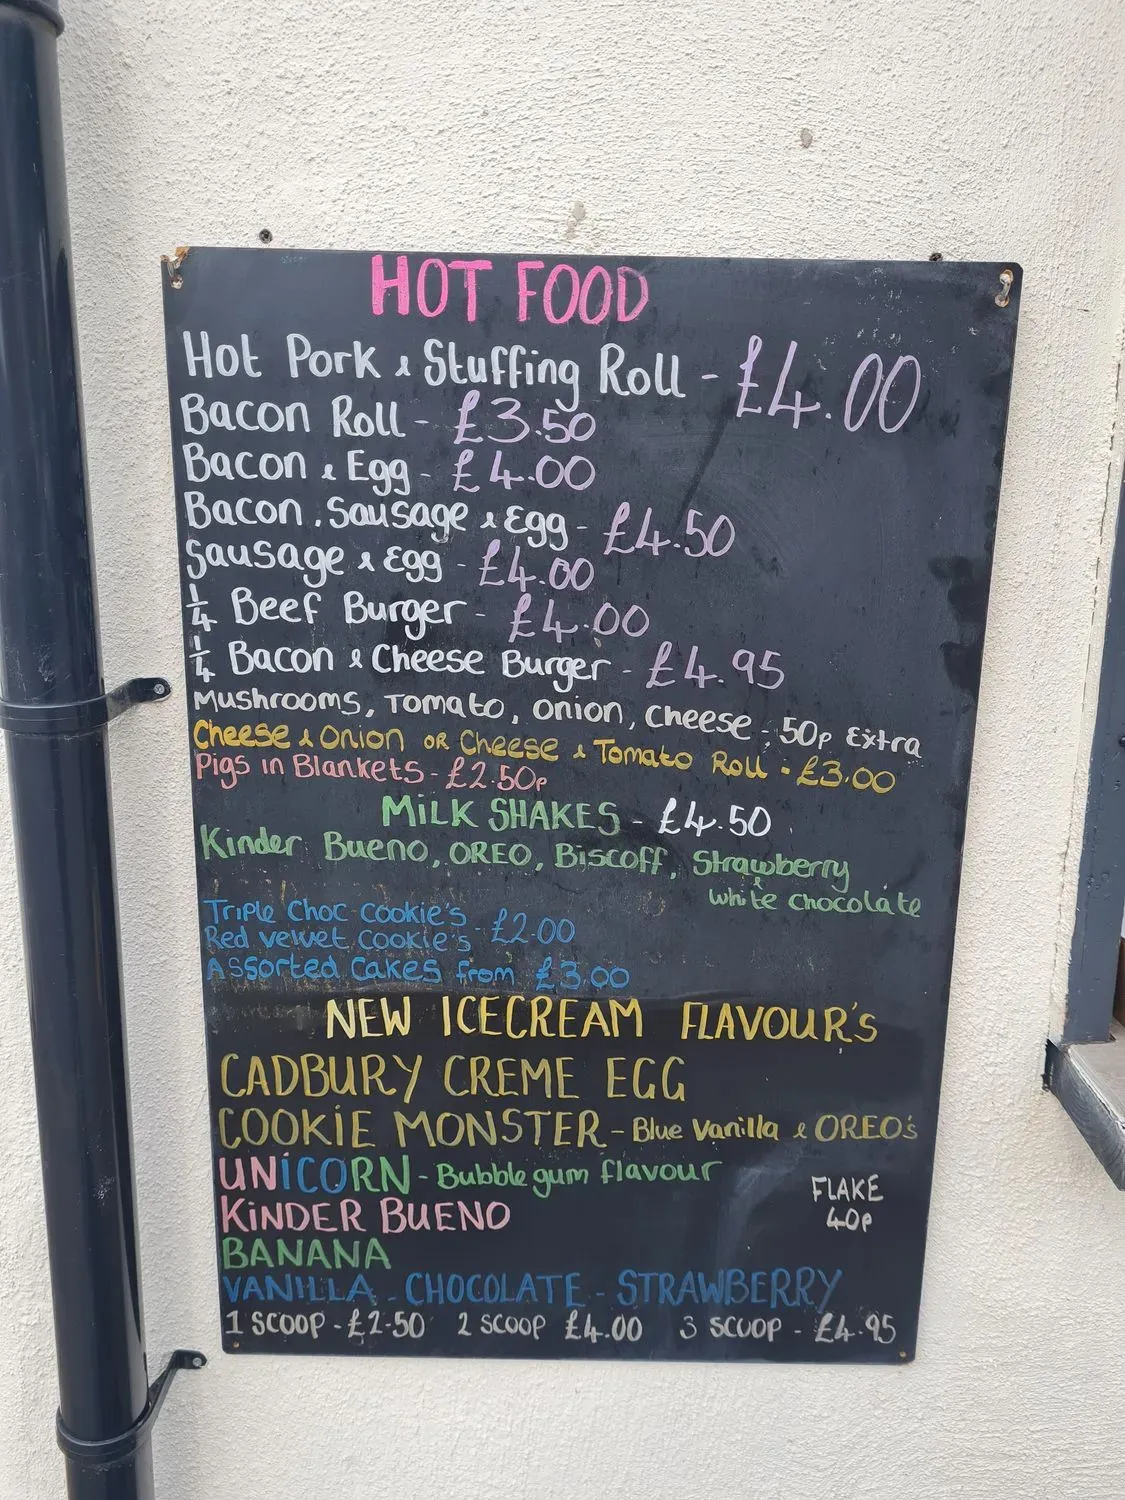 HOT FOOD
Hot Pork & Stuffing Roll - £4.00
Bacon Roll - £3.50
Bacon & Egg - £4.00
Bacon, Sausage & Egg - £4.50
Sausage & Egg - £4.00
1/4 Beef Burger - £4.00
1/4 Bacon & Cheese Burger - £4.95
Mushrooms, Tomato, Onion, Cheese - 50p Extra
Cheese & Onion OR Cheese & Tomato Roll - £3.00
Pigs in Blankets - £2.50p
MILK SHAKES - £4.50
Kinder Bueno, OREO, Biscoff, Strawberry
& White chocolate
Triple Choc Cookie's
Red velvet Cookie's - £2.00
Assorted Cakes from £3.00
NEW ICECREAM FLAVOUR'S
CADBURY CREME EGG
COOKIE MONSTER - Blue Vanilla & OREO's
UNICORN - Bubblegum flavour
FLAKE
40p
KINDER BUENO
BANANA
VANILLA - CHOCOLATE - STRAWBERRY
1 SCOOP - £2.50 2 SCOOP £4.00 3 SCOOP - £4.95